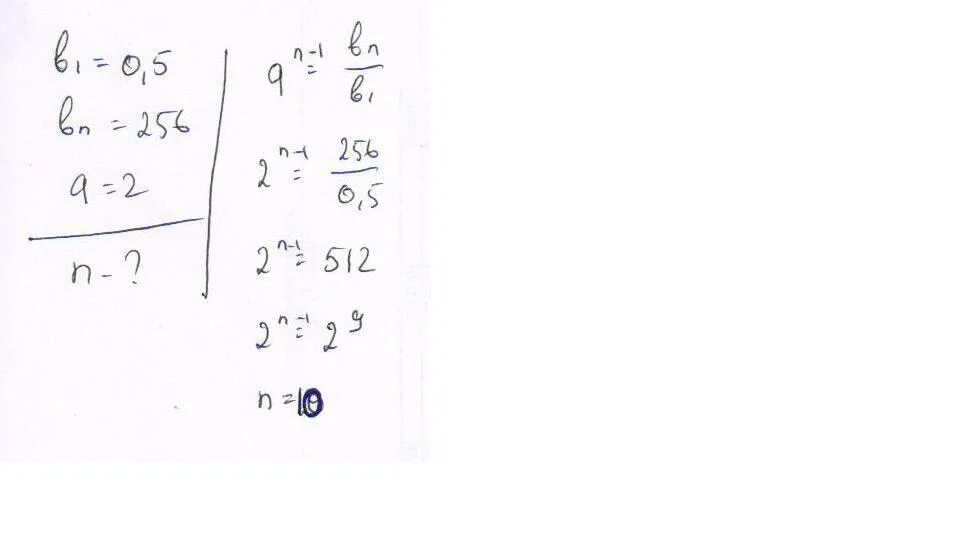 b₁ = 0,5
bₙ = 256
q = 2
n - ?
qⁿ⁻¹ = bₙ / b₁
2ⁿ⁻¹ = 256 / 0,5
2ⁿ⁻¹ = 512
2ⁿ⁻¹ = 2⁹
n = 10